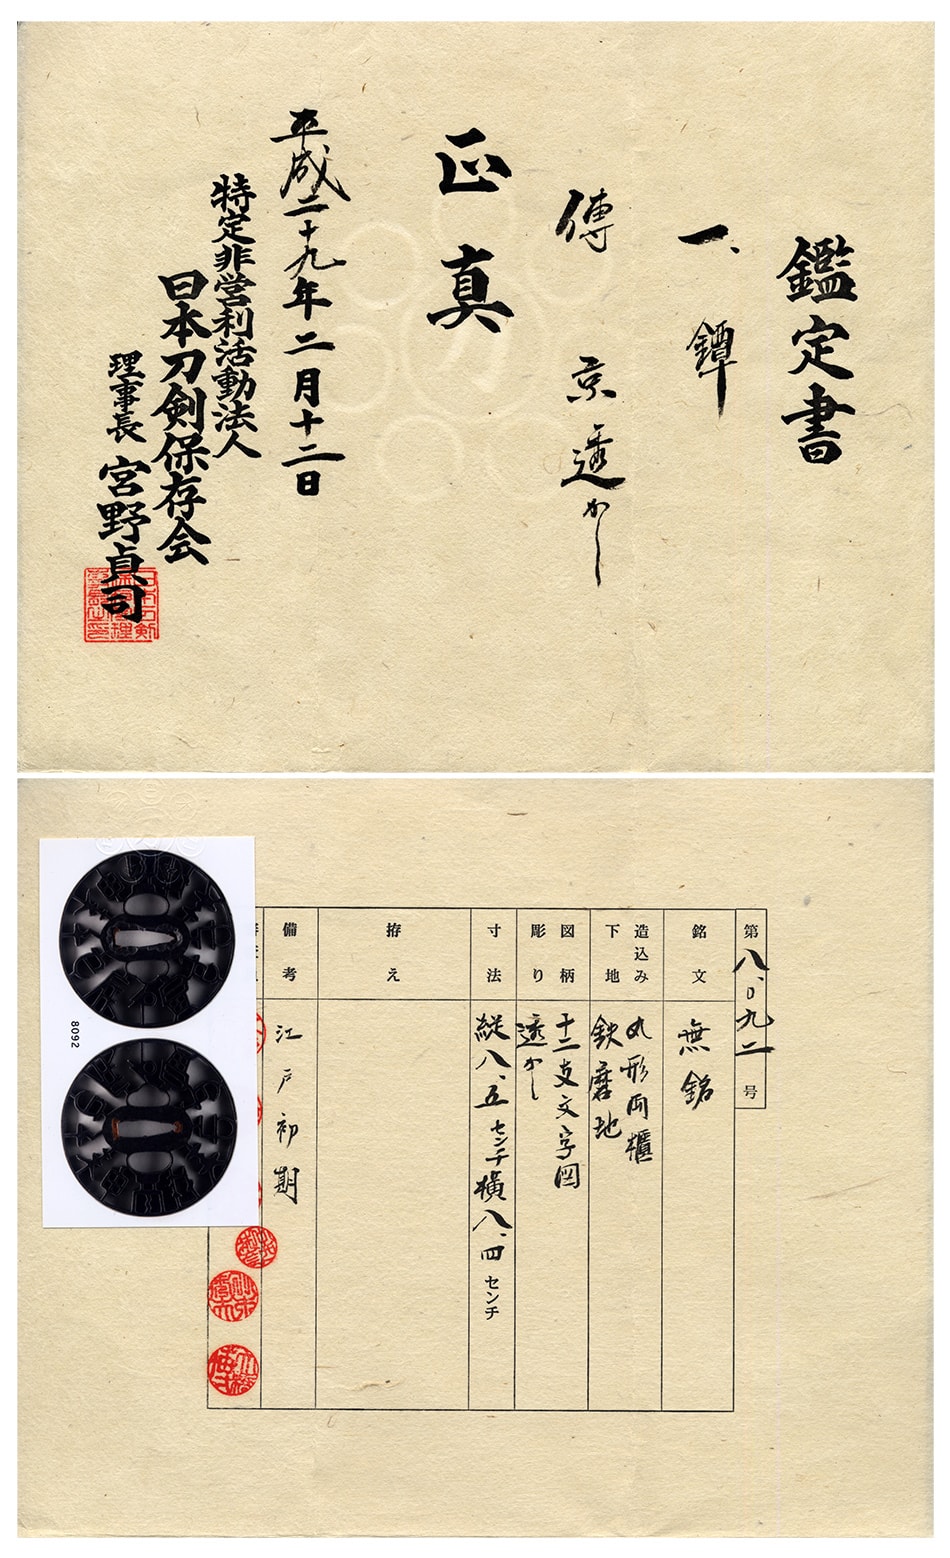 鑑定書
一、鐔
傳 京透かし
正真
平成二十九年二月十二日
特定非営利活動法人
日本刀剣保存会
理事長 宮野貞司
第八、〇九二号
銘文
無銘
造込み
下地
丸形両櫃
鉄磨地
図柄
彫り
十二支文字図
透かし
寸法
縦八、五センチ横八、四センチ
拵え
備考
江戸初期
8092